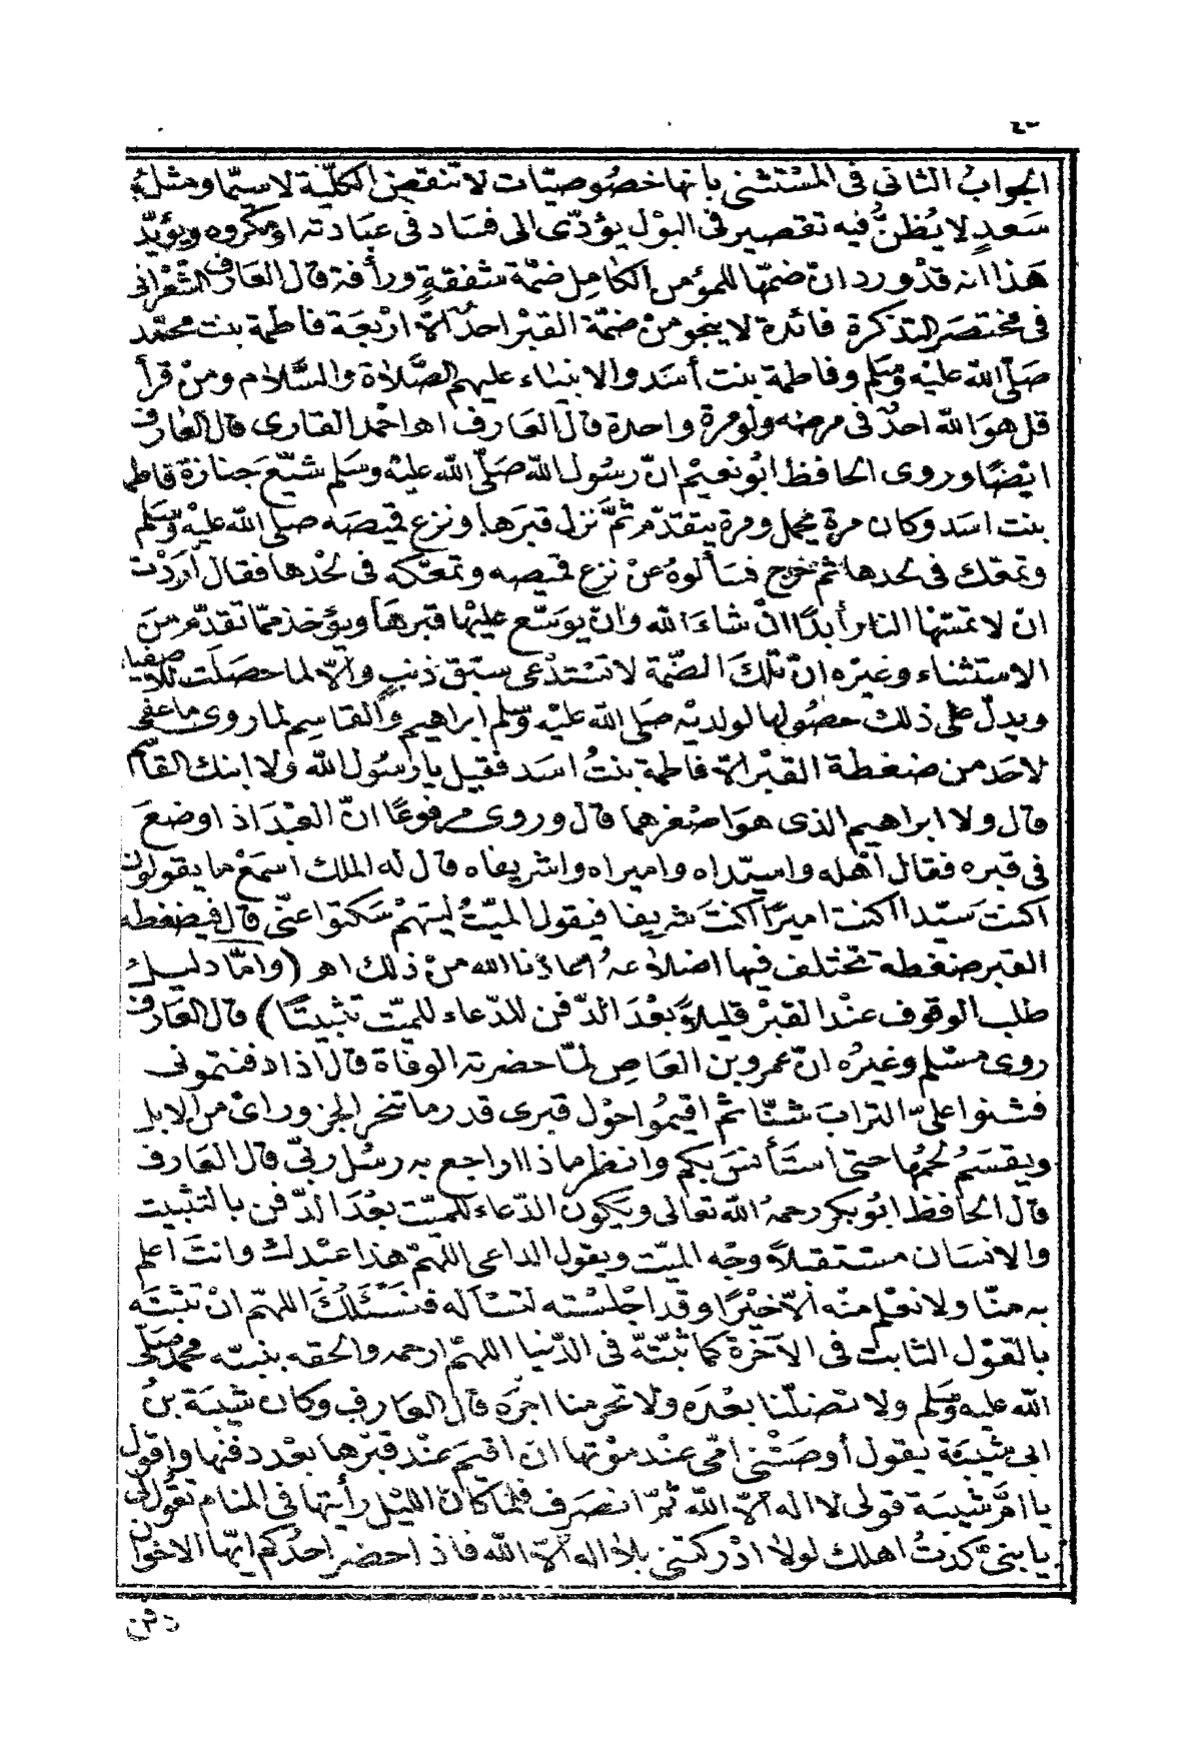 الجوابُ الثانى فى المسْتثنى بانها خصُوصيّات لا تنقض الكليّة لا سيّما ومثلُ
سَعدٍ لا يُظنُّ فيه تقصير فى البوْل يؤدّى الى فسَاد فى عبَادته او مكروه ويؤيّد
هَذا انه قدْ ورد انّ ضمّها للمؤمن الكامِل ضمّة شفقةٍ ورأفة قال العارف الشعْرانى
فى مختصَر التذكرة فائدة لا ينجو منْ ضمّة القبْر احدٌ الاّ ارْبعَة فاطمة بنت محمّد
صَلّى الله عليْه وسَلم وفاطمة بنت أسَد والانبيَاء عليهم الصَّلاة والسَّلام ومنْ قرأ
قل هوَ الله احدٌ فى مرضه ولو مرة واحدة قال العَارف اهـ احْمد القارى قال العَارف
ايْضًا وروى الحَافظ ابُو نعيْم انّ رسُول الله صَلّى الله عليْه وسَلم شيّعَ جنازة فاطمة
بنت اسَد وكان مرة يحمل ومرة يتقدّم ثمَّ نزل قبرَها ونزع قميصَه صلى الله عليْه وسَلم
وتمعّك فى لحدها ثم خرج فسَألوهُ عنْ نزع قميصه وتمعّكه فى لحْدها فقال أرَدْت
انْ لا تمسّهَا النار أبدًا انْ شاءَ الله وانْ يوسّع عليْها قبرهَا ويؤخذ ممّا تقدّم منَ
الاستثناء وغيره انّ تلكَ الضّمة لا تسْتدْعى سبَق ذنبٍ والاّ لما حصَلَت للاصفياء
ويدلّ على ذلك حصُولها لولديْه صَلى الله عليْه وسَلم ابراهيم والقاسِم لما روى ما عفى
لاحَد من ضغطة القبْر الاّ فاطمة بنتُ اسَد فقيل يا رسُول الله ولا ابنك القاسم
قال ولا ابراهيم الذى هوَ اصْغرهما قال وروى مرفوعًا انّ العبْدَ اذا وضعَ
فى قبره فقال أهْله واسيّداه واميراه واشريفاه قال له الملك اسمَعْ ما يقولون
أكنتَ سَيّدا أكنت اميرًا أكنتَ شريفا فيقول الميّتُ ليتهمْ سَكتوا عنّى قال فيضغطه
القبر ضغطة تختلف فيها اضلاعهُ اعاذنا الله منْ ذلك اهـ (وامّا دليل
طلب الوقوف عنْد القبْر قليلاً بعْدَ الدّفن للدّعاء للميّت تثبيتًا) قال العَارف
روى مسْلم وغيرُه انّ عمرو بن العَاصِ لمّا حضرته الوفاة قال اذا دفنتمونى
فشنوا علىّ الترابَ شنّا ثم اقيمُوا حوْل قبرى قدر ما تنحر الجزور اىْ من الابل
ويقسَمُ لحْمُها حتى استَأنسَ بكم وانظر ماذا اراجع به رسُل ربّى قال العَارف
قال الحَافظ ابُو بكر رحمهُ الله تعَالى ويَكون الدّعاء للميّت بعْدَ الدّفن بالتثبيت
والانسَان مسْتقبلاً وجْه الميّت ويقول الداعى اللهمّ هذا عبْدك وانتَ اعلم
به منّا ولا نعْلم منْه الاّ خيْرًا وقد اجْلسْته لتسْأله فنسْئَلُكَ اللهمّ انْ تثبّته
بالقوْل الثابت فى الآخرَة كما ثبّتّه فى الدّنيا اللهمّ ارحمه والحقه بنبيّه محمد صَلّى
الله عليه وسَلم ولا تضلّنا بعْدَه ولا تحرمنا اجرَه قال العَارف وكان شيْبَة بنُ
ابى شيْبَة يقول أوصَتْنى امّى عنْد موْتها ان اقيمَ عنْد قبْرها بعْد دفنها واقول
يا امَّ شيْبَة قولى لا اله الاّ الله ثمّ انصَرف فلمّا كان الليْل رأيتها فى المنام تقُول لى
يا بنىّ كدْتُ اهلك لولا ادْركتنى بلا اله الاّ الله فاذا حضر احدُكم ايّها الاخوان
دفن